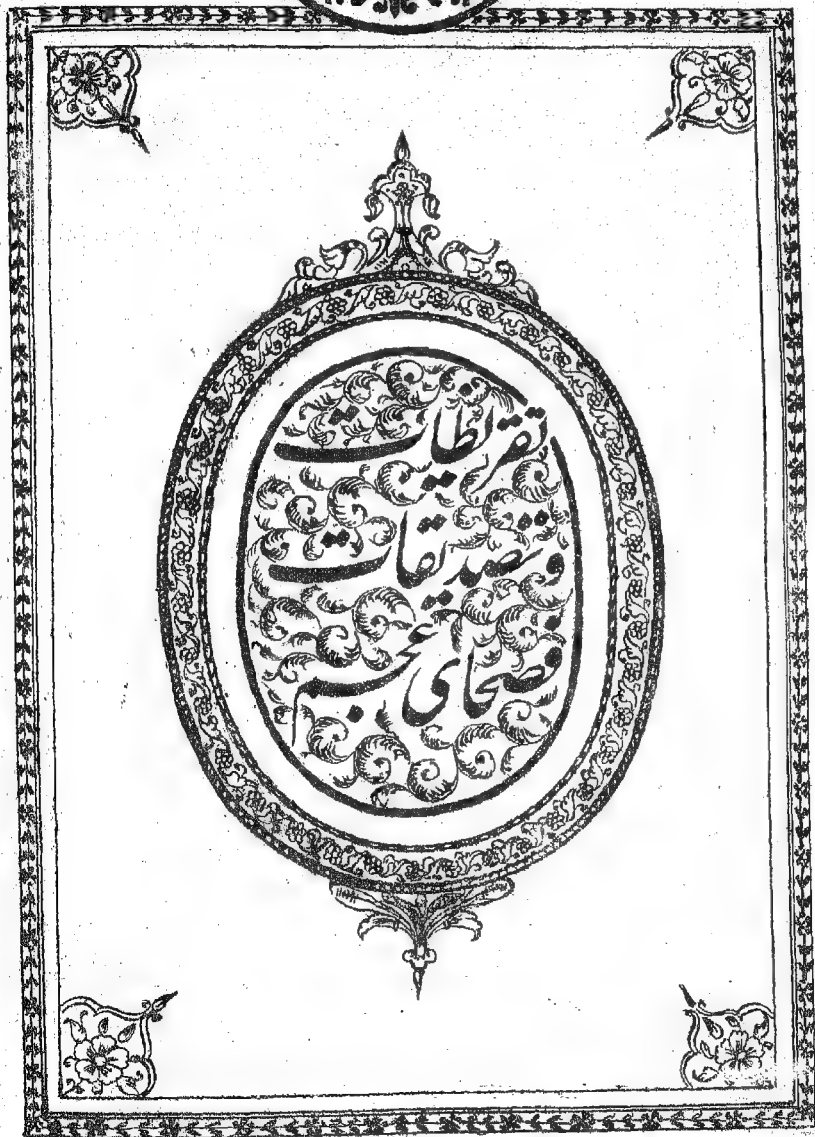 تقریظات
و تصدیقات
فصحای عجم